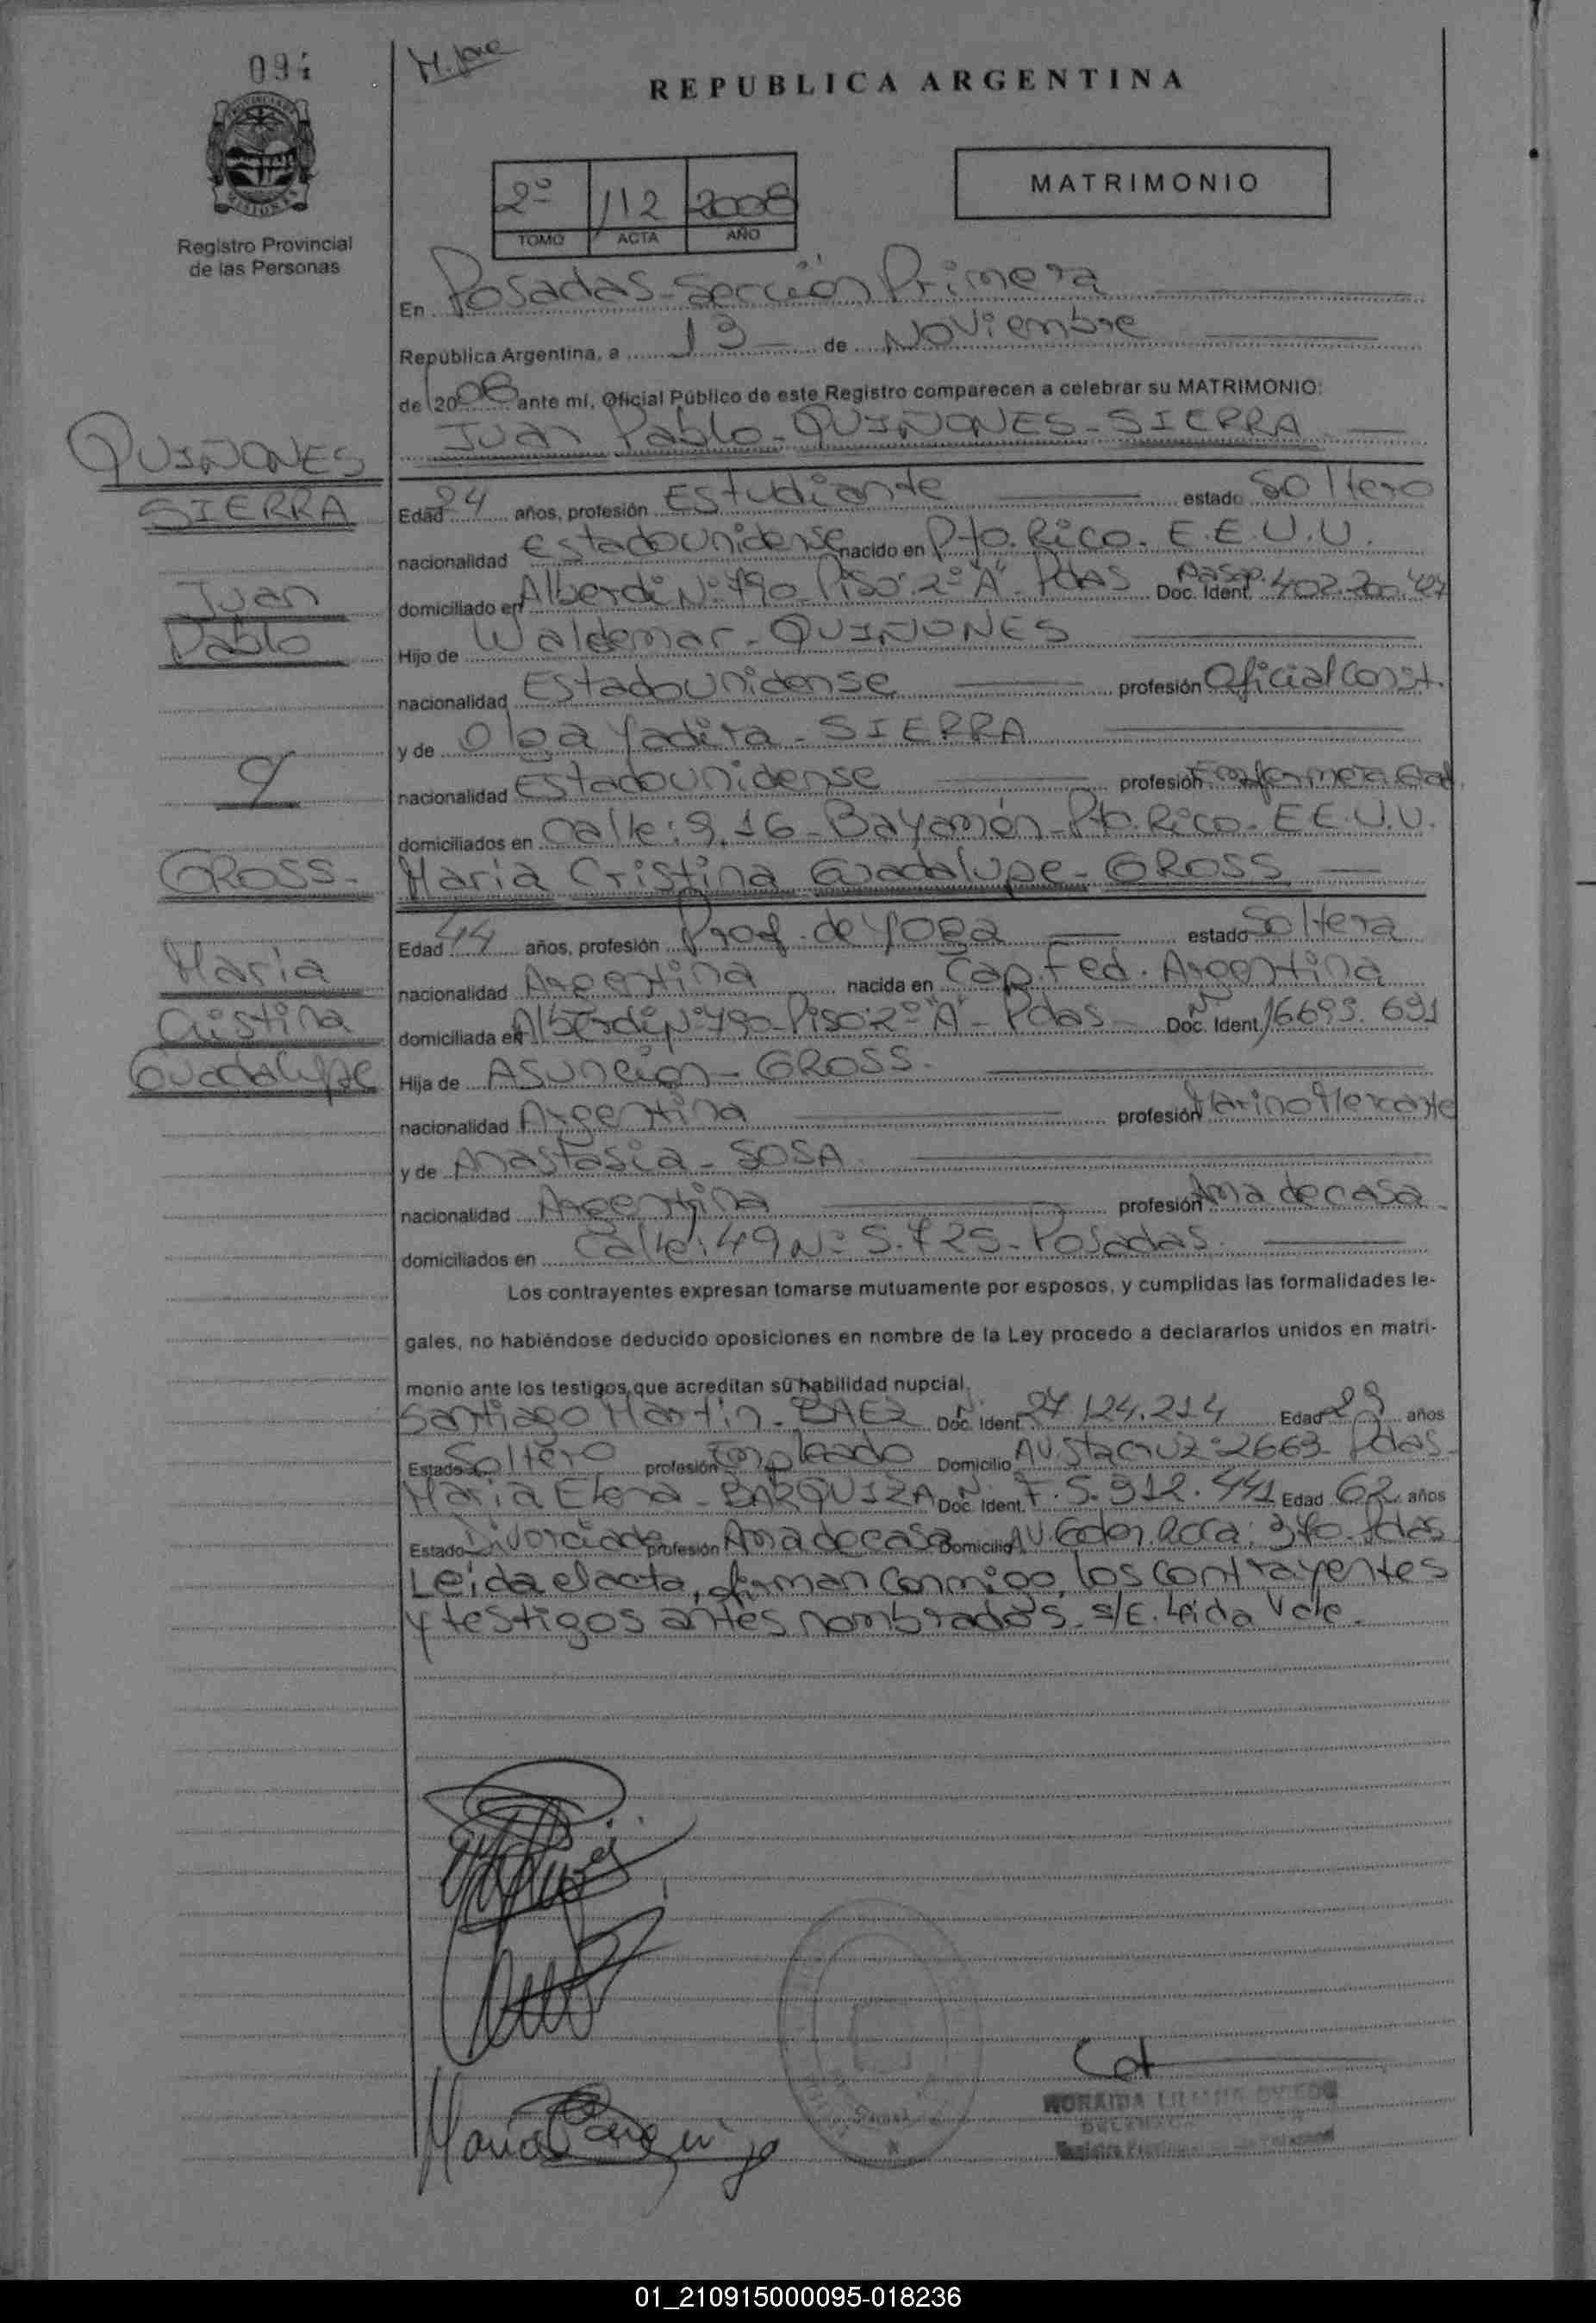 094
REPUBLICA ARGENTINA
2º 112 2008
TOMO ACTA AÑO
MATRIMONIO
Registro Provincial
de las Personas
En Posadas - Sección Primera
República Argentina, a 13 de Noviembre
de 2008 ante mí, Oficial Público de este Registro comparecen a celebrar su MATRIMONIO:
Juan Pablo - QUIÑONES - SIERRA
QUIÑONES
SIERRA
Juan
Pablo
Edad 24 años, profesión Estudiante estado Soltero
nacionalidad Estadounidense nacido en Pto. Rico. E.E.U.U.
domiciliado en Alberdi Nº 790 Piso: 2º "A" - Pdas Doc. Ident. Pasap. 402.200.427
Hijo de Waldemar - QUIÑONES
nacionalidad Estadounidense profesión Oficial Const.
y de Olga Yadira - SIERRA
nacionalidad Estadounidense profesión Enfermera
domiciliados en Calle: 9.16 - Bayamón - Pto. Rico - E.E.U.U.
María Cristina Guadalupe - GROSS
GROSS -
María
Cristina
Guadalupe
Edad 44 años, profesión Prof. de Yoga estado Soltera
nacionalidad Argentina nacida en Cap. Fed. Argentina
domiciliada en Alberdi Nº 790 - Piso: 2º "A" - Pdas Doc. Ident. Nº 16693.691
Hija de Asunción - GROSS.
nacionalidad Argentina profesión Marino Mercante
y de Anastasia - SOSA
nacionalidad Argentina profesión Ama de casa
domiciliados en Calle: 49 Nº 5.725 - Posadas.
Los contrayentes expresan tomarse mutuamente por esposos, y cumplidas las formalidades le-
gales, no habiéndose deducido oposiciones en nombre de la Ley procedo a declararlos unidos en matri-
monio ante los testigos que acreditan su habilidad nupcial.
Santiago Martín - BAEZ Doc. Ident. Nº 27.124.214 Edad 29 años
Estado Soltero profesión Empleado Domicilio Av. Sta Cruz: 2663 - Pdas -
María Elena - BARQUIZA Doc. Ident. Nº F. 5.912.441 Edad 62 años
Estado Divorciada profesión Ama de casa Domicilio Av. Gdor. Roca: 340 - Pdas
Leída el acta, firman conmigo, los contrayentes
y testigos antes nombrados. s/E. Leída Vale.
Registro Provincial de las Personas
01_210915000095-018236